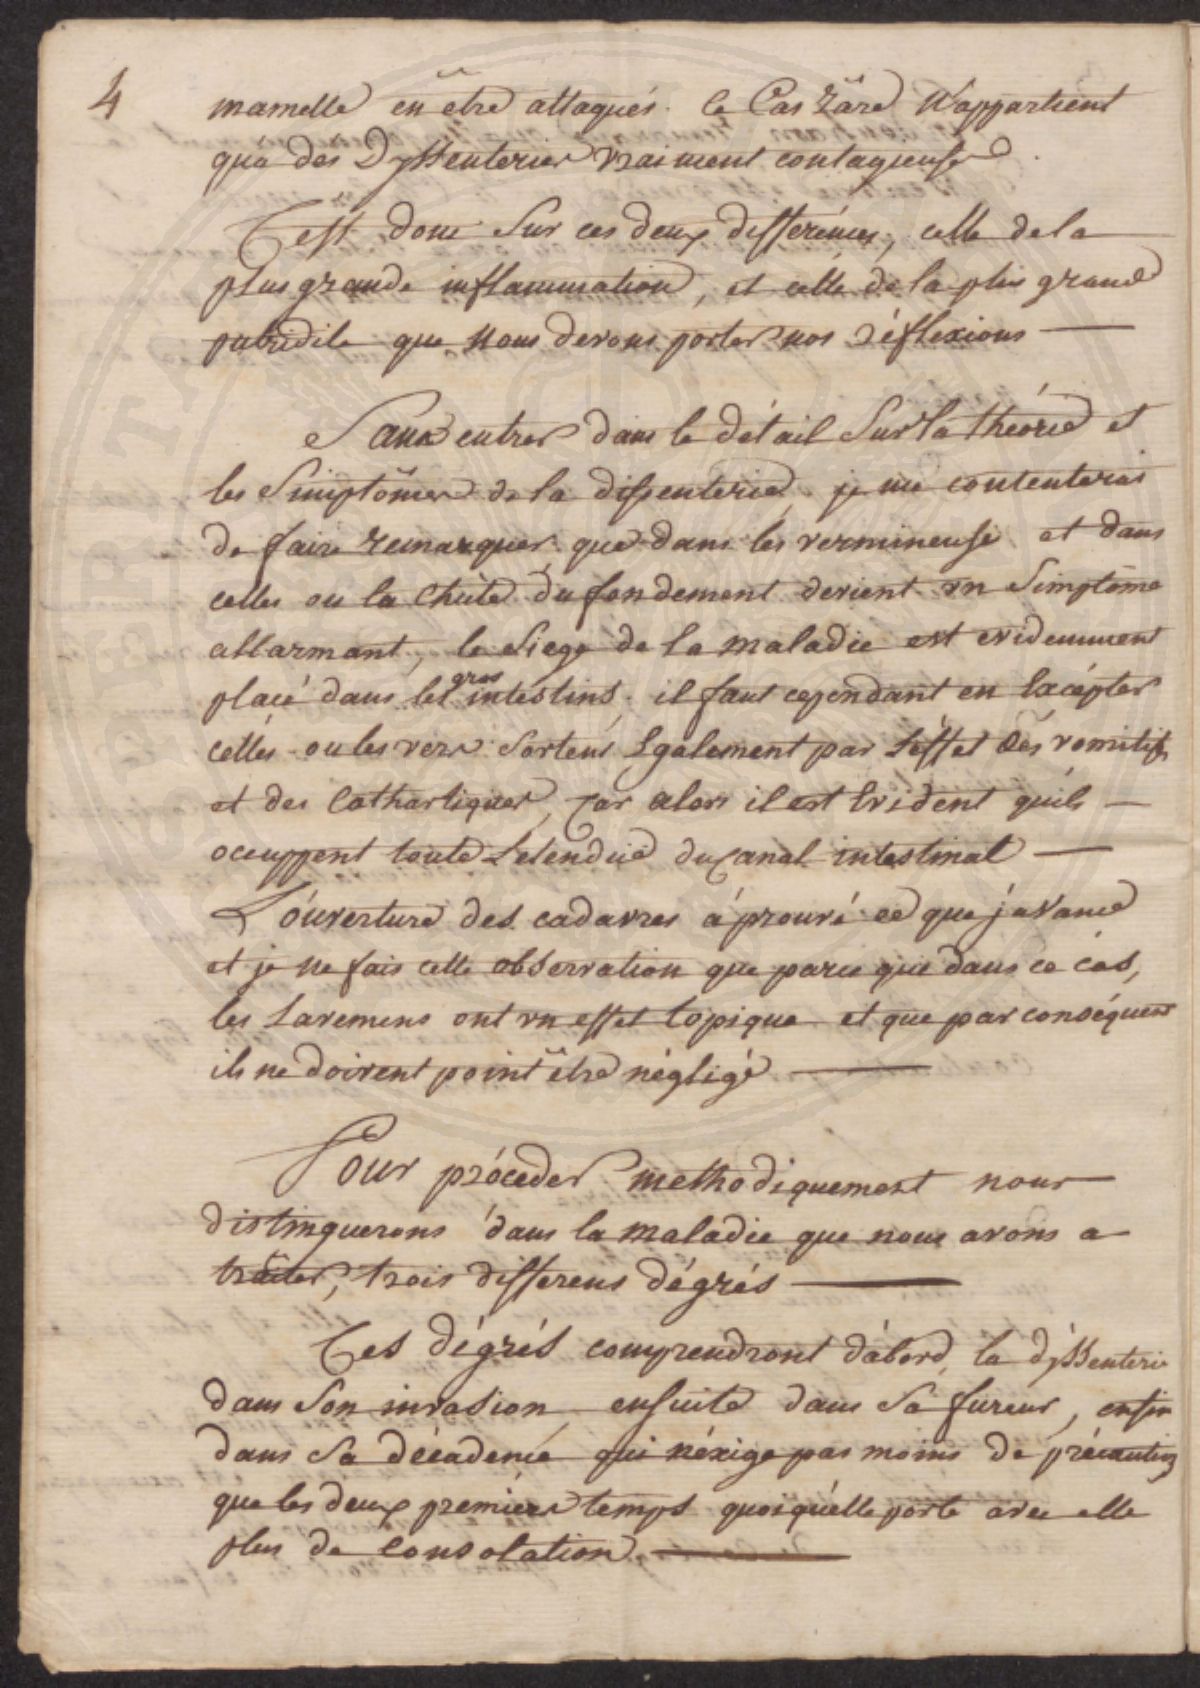 4
mamelle en être attaqués. Ce Cas rare n'appartient
qu'à des Dyssenteries vraiment contagieuse.
C'est donc Sur ces deux differénces, celle de la
plus grande inflammation, et celle de la plus grand
putridité que nous devons porter nos réflexions —
Sans entrer dans le détail Sur la théorie et
les Simptômes de la dissenterie, je me contenterai
de faire remarquer que dans les vermineuse et dans
celles ou la Chûte du fondement devient un Simptôme
allarmant, le Siege de la maladie est evidemment
placé dans les gros intestins, il faut cependant en Excépter
célles ou les vers Sortent Egalement par L'éffet des vomitifs
et des Cathartiques, car alors il est Evident quils —
occuppent toute L'etendüe du Canal intestinal —
L'óuverture des cadavres á prouvé ce que j'avance
et je ne fais cette observation que parce que dans ce cás,
les Lavemens ont un effet topique et que par conséquent
ils ne doivent point être négligé —
Pour procéder methodiquement nous
distinguerons dans la maladie que nous avons a
traiter, trois differens dégrés —
Ces dégrés comprendront d'abord la dyssenterie
dans Son invasion, ensuite dans Sa fureur, enfin
dans Sa décadence qui n'éxige pas moins de précaution
que les deux premiers temps quoiqu'elle porte avec elle
plus de Consolation. —